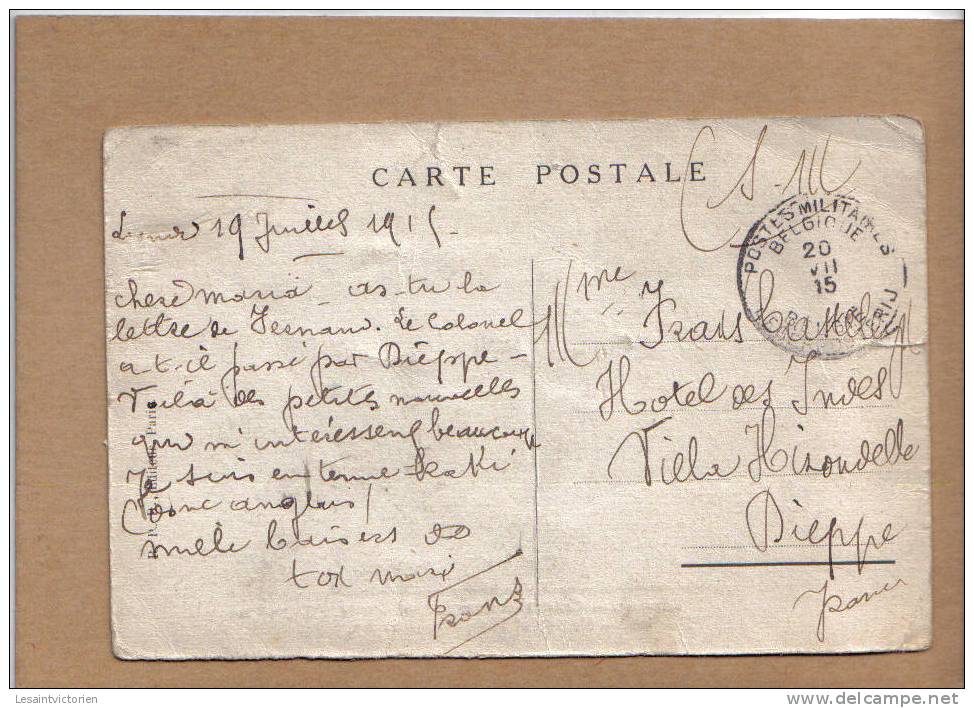 CARTE POSTALE
S.M
19 Juillet 1915.
POSTES MILITAIRES
BELGIQUE
20
VII
15
chere Maria - as-tu la
lettre de Fernand. Le Colonel
a-t-il passé par Dieppe -
Voilà des petites nouvelles
qui m'intéressent beaucoup
Je suis en tenue Kaki
(donc anglais)
mille baisers de
ton mari
Frans
Mme Frans
Hotel des Indes
Villa Hirondelle
Dieppe
france
Paris
Lesaintvictorien
www.delcampe.net